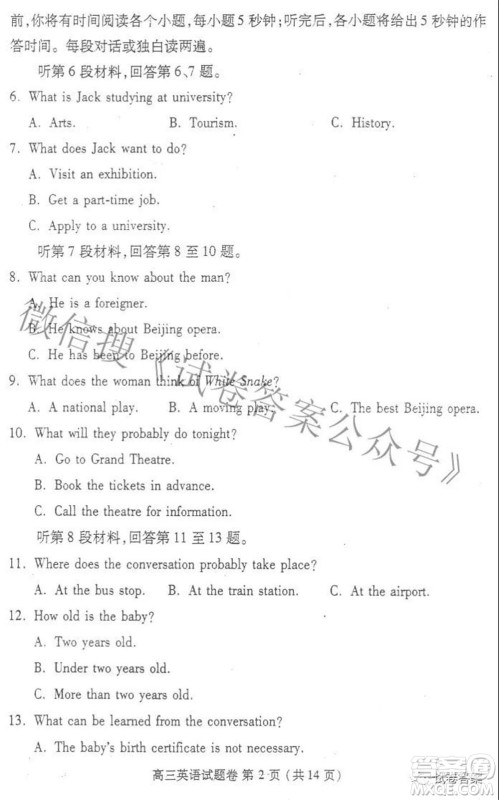 前，你将有时间阅读各个小题，每小题 5 秒钟；听完后，各小题将给出 5 秒钟的作
答时间。每段对话或独白读两遍。
听第 6 段材料，回答第 6、7 题。
6. What is Jack studying at university?
A. Arts. B. Tourism. C. History.
7. What does Jack want to do?
A. Visit an exhibition.
B. Get a part-time job.
C. Apply to a university.
听第 7 段材料，回答第 8 至 10 题。
8. What can you know about the man?
A. He is a foreigner.
B. He knows about Beijing opera.
C. He has been to Beijing before.
9. What does the woman think of White Snake?
A. A national play. B. A moving play. C. The best Beijing opera.
10. What will they probably do tonight?
A. Go to Grand Theatre.
B. Book the tickets in advance.
C. Call the theatre for information.
听第 8 段材料，回答第 11 至 13 题。
11. Where does the conversation probably take place?
A. At the bus stop. B. At the train station. C. At the airport.
12. How old is the baby?
A. Two years old.
B. Under two years old.
C. More than two years old.
13. What can be learned from the conversation?
A. The baby's birth certificate is necessary.
高三英语试题卷 第 2 页（共 14 页）
微信搜《试卷答案公众号》
试卷答案